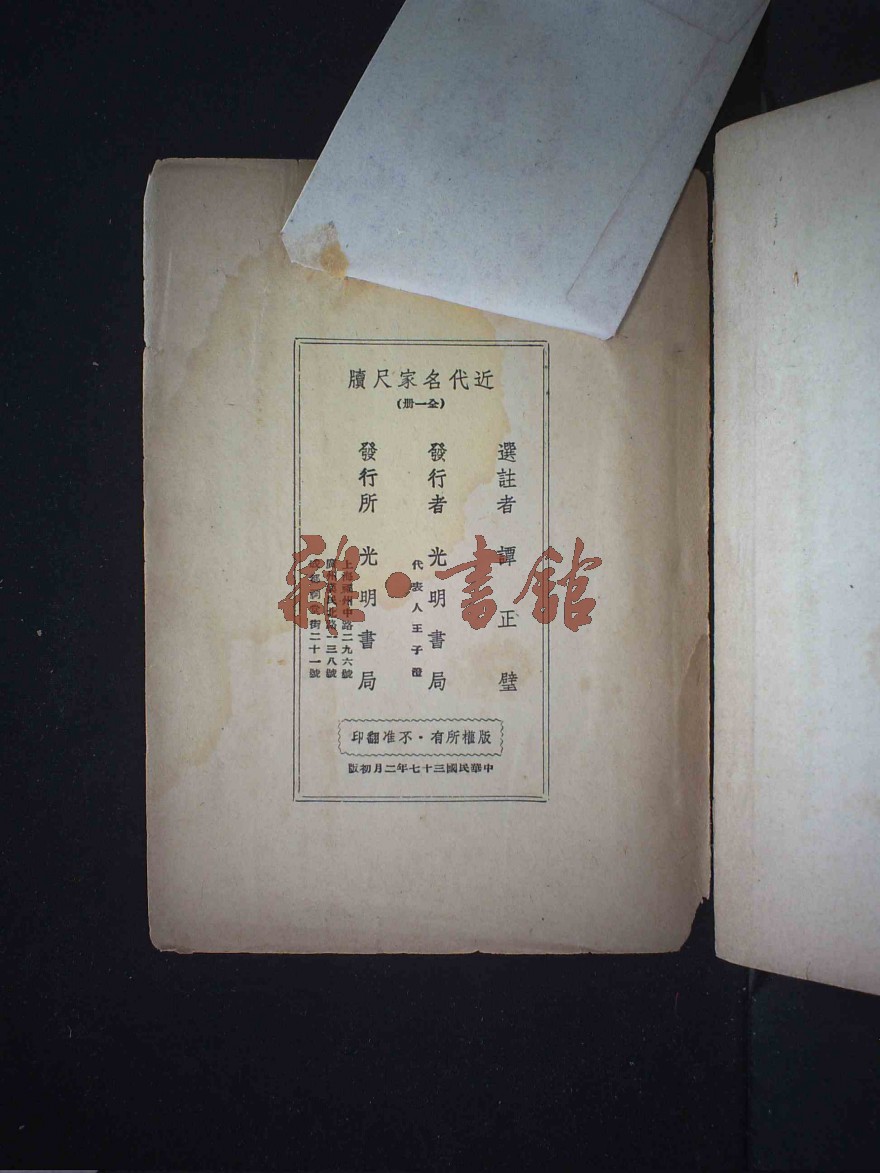 近代名家尺牘
(全一册)
選註者 譚正璧
發行者 光明書局
代表人王子澄
發行所 光明書局
上海福州中路二九六號
廣州惠民北路一三八號
成都祠堂街二十一號
版權所有・不准翻印
中華民國三十七年二月初版
雜・書館